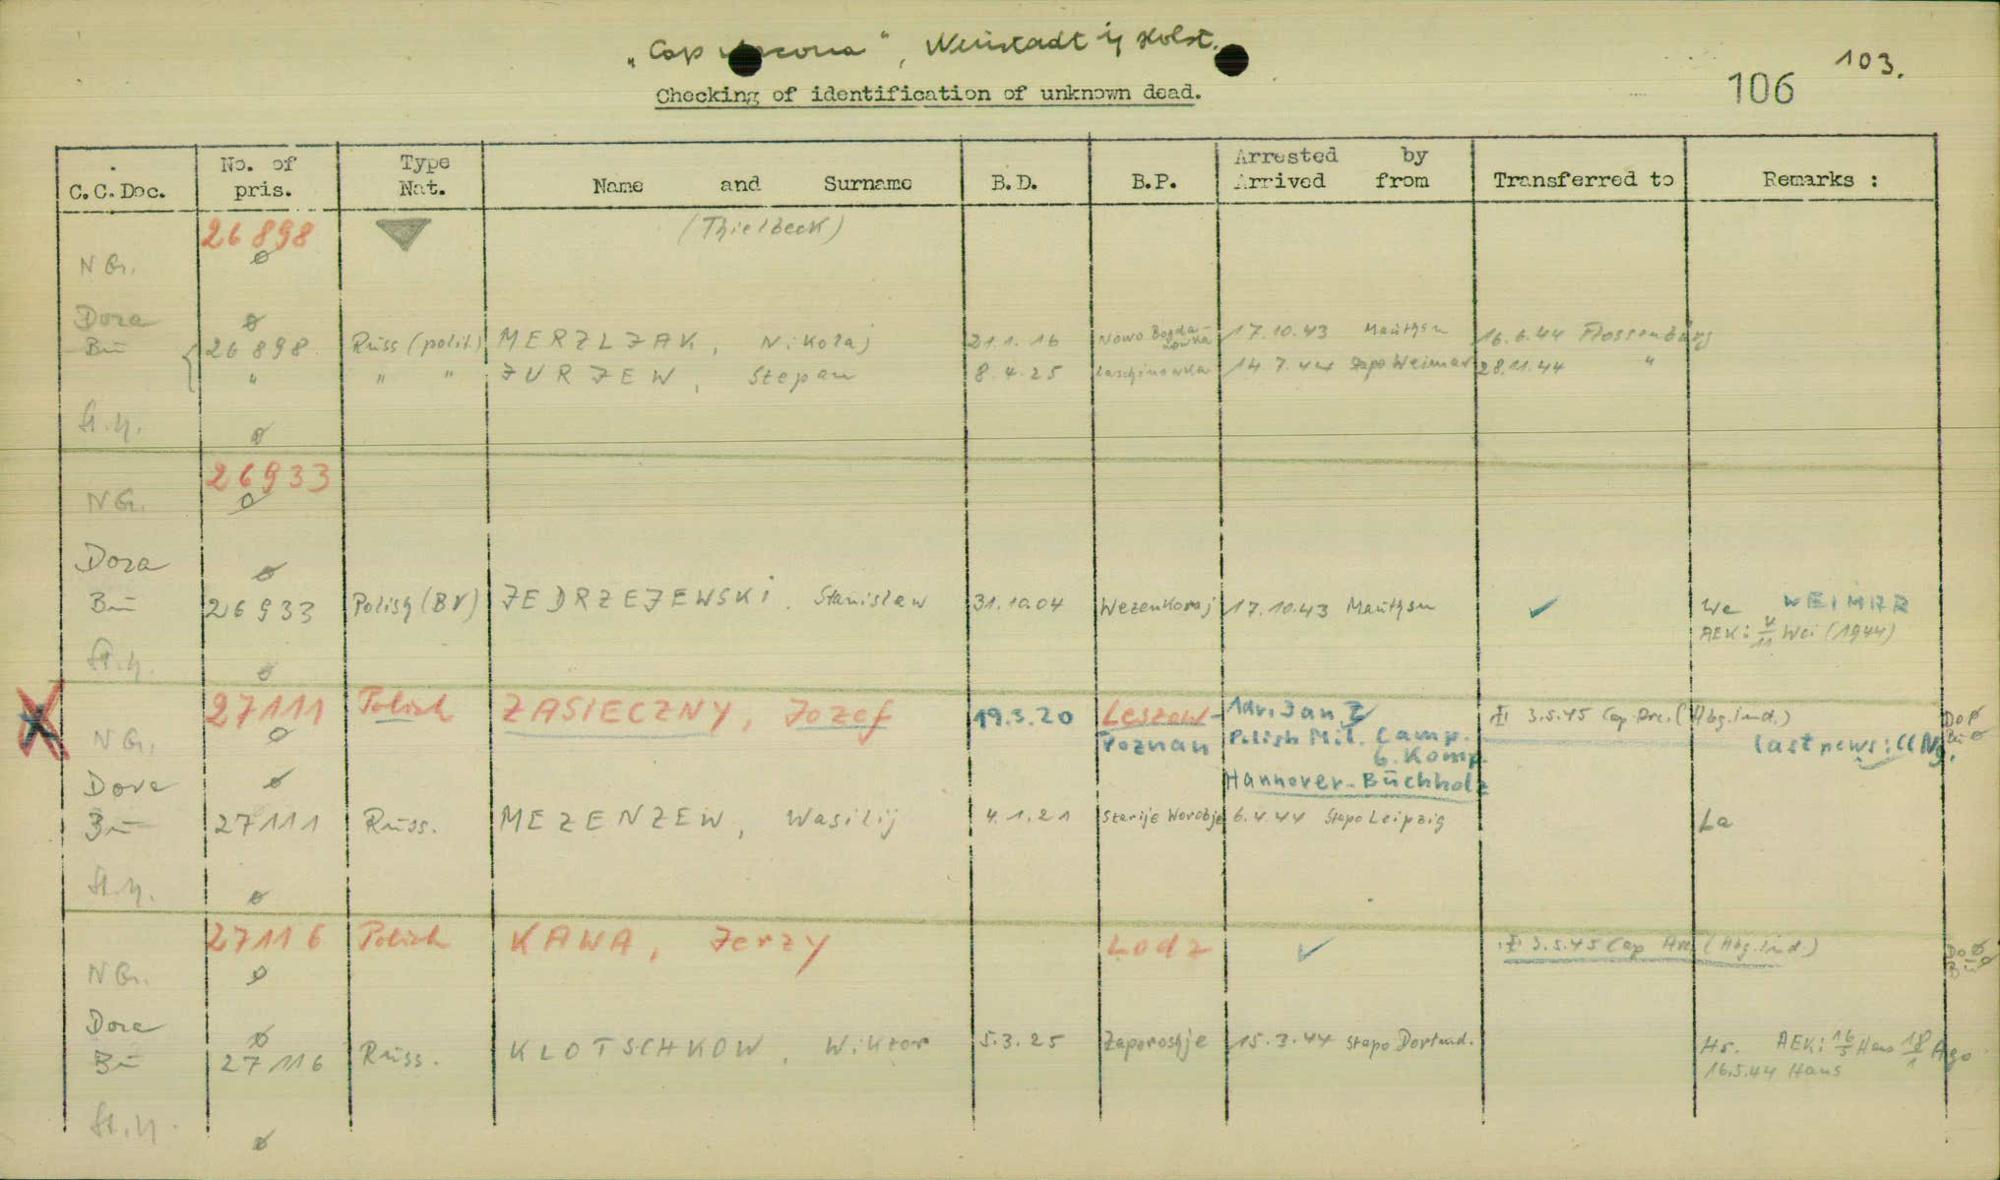 „Cap Arcona“, Neustadt i/ Holst.
103.
106
Checking of identification of unknown dead.
C.C.Doc. No. of pris. Type Nat. Name and Surname B.D. B.P. Arrested by Arrived from Transferred to Remarks :
26898 (Thielbeck)
N G. ø
Dora ø
Bu 26898 Russ (polit.) MERZLJAK, Nikolaj 21.1.16 Nowo Bogdanowka 17.10.43 Mauthsn 16.6.44 Flossenbürg
" " " JURJEW, Stepan 8.4.25 14.7.44 Stapo Weimar 28.11.44 "
St.H. ø
26933
N G. ø
Dora ø
Bu 26933 Polish (BV) JEDRZEJEWSKI, Stanislaw 31.10.04 17.10.43 Mauthsn ✓ We WEIMAR
AEK: 4/11 Wei (1944)
St.H. ø
X 27111 Polish ZASIECZNY, Jozef 19.3.20 Leszew- Adr. Jan Z 3.5.45 Cap Arc. (Abg.ind.) Do ø
N G. ø Poznan Polish Mil. Camp. last news: CC Ng. Bu ø
6. Komp.
Dora ø Hannover-Buchholz
Bu 27111 Russ. MEZENZEW, Wasilij 4.1.21 Starije Worobje 6.4.44 Stapo Leipzig La
St.H. ø
27116 Polish KAWA, Jerzy Lodz ✓ 3.5.45 Cap Arc (Abg.ind.) Do ø
N G. ø Bu ø
Dora ø
Bu 27116 Russ. KLOTSCHKOW, Wiktor 5.3.25 Zaporoshje 15.3.44 Stapo Dortmd. Hs. AEK: 16/5 Hans 18/1 Ago
16.5.44 Hans
St.H. ø